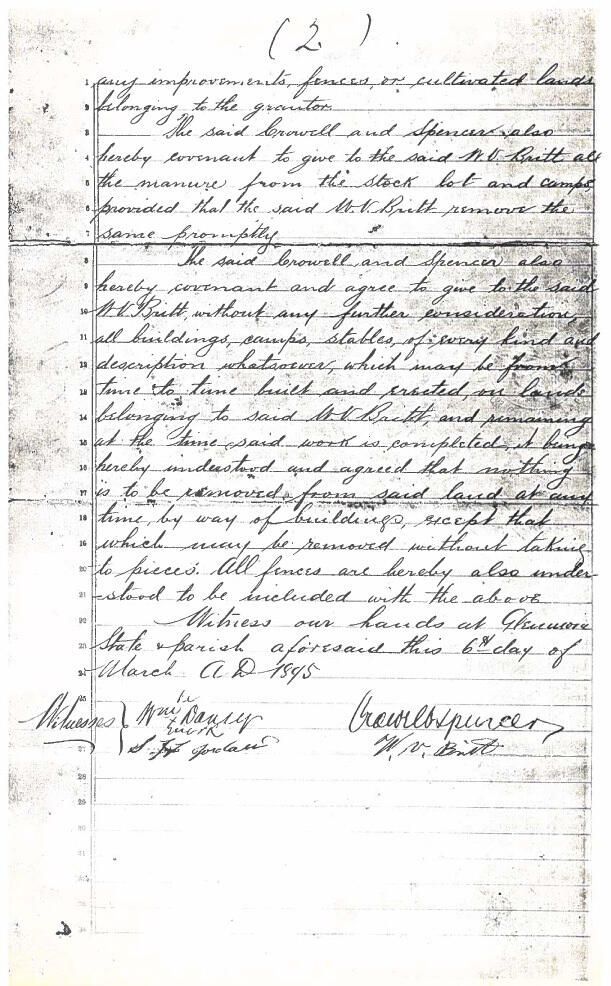 (2)
any improvements, fences, or cultivated lands
belonging to the grantor.
The said Crowell and Spencer also
hereby covenant to give to the said W. V. Britt all
the manure from the stock lot and camps,
provided that the said W. V. Britt remove the
same promptly.
The said Crowell and Spencer also
hereby covenant and agree to give to the said
W. V. Britt, without any further consideration,
all buildings, camps, stables, of every kind and
description whatsoever, which may be from
time to time built and erected, on lands
belonging to said W. V. Britt, and remaining
at the time said work is completed, it being
hereby understood and agreed that nothing
is to be removed from said land at any
time, by way of buildings, except that
which may be removed without taking
to pieces. All fences are hereby also under-
-stood to be included with the above.
Witness our hands at Glenmora
State & parish aforesaid this 6th day of
March A.D 1895
Witnesses } Crowell & Spencer
S. Jordan W. V. Britt